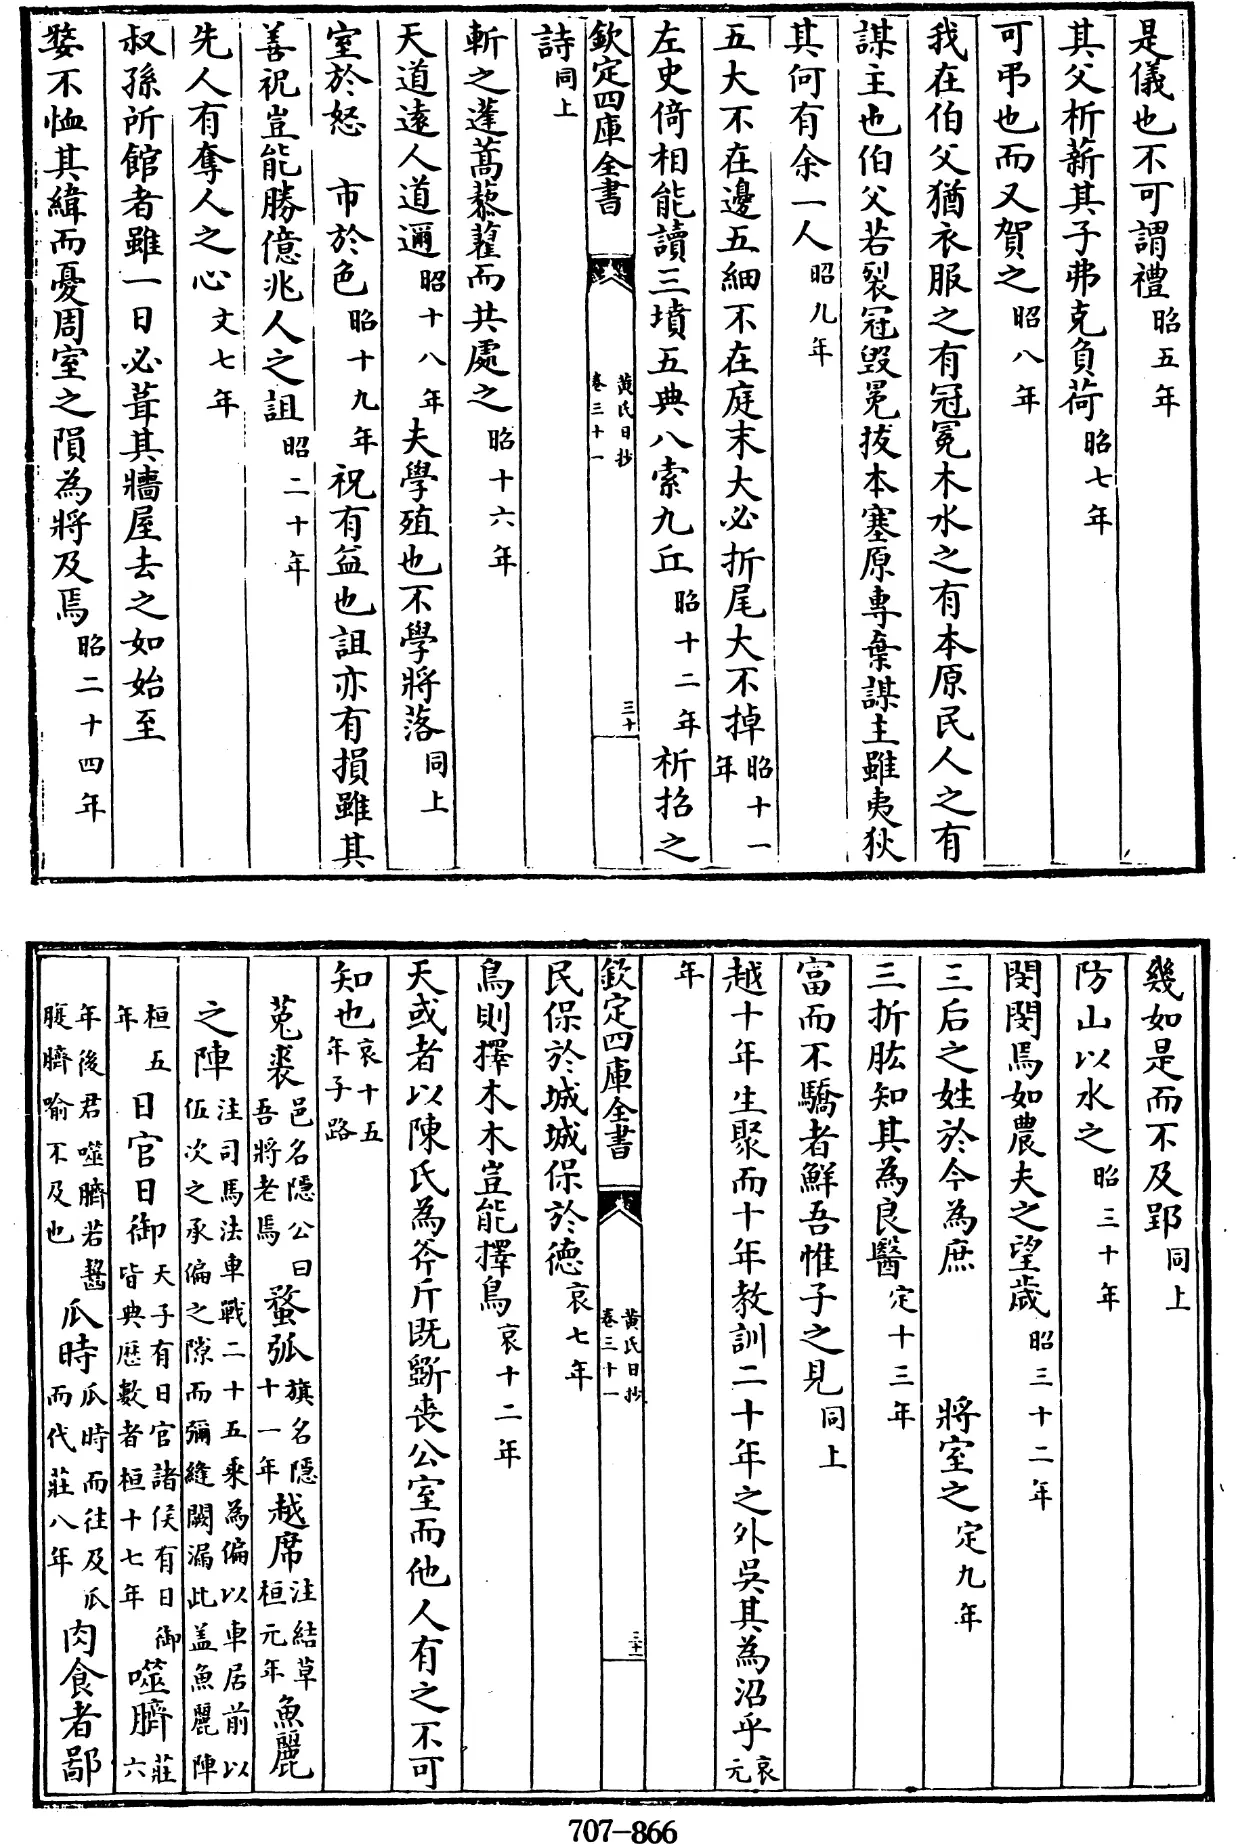 是儀也不可謂禮昭五年
其父析薪其子弗克負荷昭七年
可弔也而又賀之昭八年
我在伯父猶衣服之有冠冕木水之有本原民人之有
謀主也伯父若裂冠毀冕拔本塞原專棄謀主雖夷狄
其何有余一人昭九年
五大不在邊五細不在庭末大必折尾大不掉昭十一年
左史倚相能讀三墳五典八索九丘昭十二年祈招之
欽定四庫全書 黃氏日抄 卷三十一 三十
詩同上
斬之蓬蒿藜藿而共處之昭十六年
天道遠人道邇昭十八年夫學殖也不學將落同上
室於怒 市於色昭十九年祝有益也詛亦有損雖其
善祝豈能勝億兆人之詛昭二十年
先人有奪人之心文七年
叔孫所館者雖一日必葺其牆屋去之如始至
嫠不恤其緯而憂周室之隕為將及焉昭二十四年
幾如是而不及郢同上
防山以水之昭三十年
閔閔焉如農夫之望歲昭三十二年
三后之姓於今為庶 將室之定九年
三折肱知其為良醫定十三年
富而不驕者鮮吾惟子之見同上
越十年生聚而十年教訓二十年之外吳其為沼乎哀元
年
欽定四庫全書 黃氏日抄 卷三十一 三十一
民保於城城保於德哀七年
鳥則擇木木豈能擇鳥哀十二年
天或者以陳氏為斧斤既斲喪公室而他人有之不可
知也哀十五年子路
菟裘邑名隱公曰吾將老焉 蝥弧旗名隱十一年 越席注結草桓元年 魚麗
之陣注司馬法車戰二十五乘為偏以車居前以伍次之承偏之隙而彌縫闕漏此蓋魚麗陣
桓五年 日官日御天子有日官諸侯有日御皆典歷數者桓十七年 噬臍莊六
年後君噬臍若齧腹臍喻不及也 瓜時瓜時而往及瓜而代莊八年 肉食者鄙
707-866